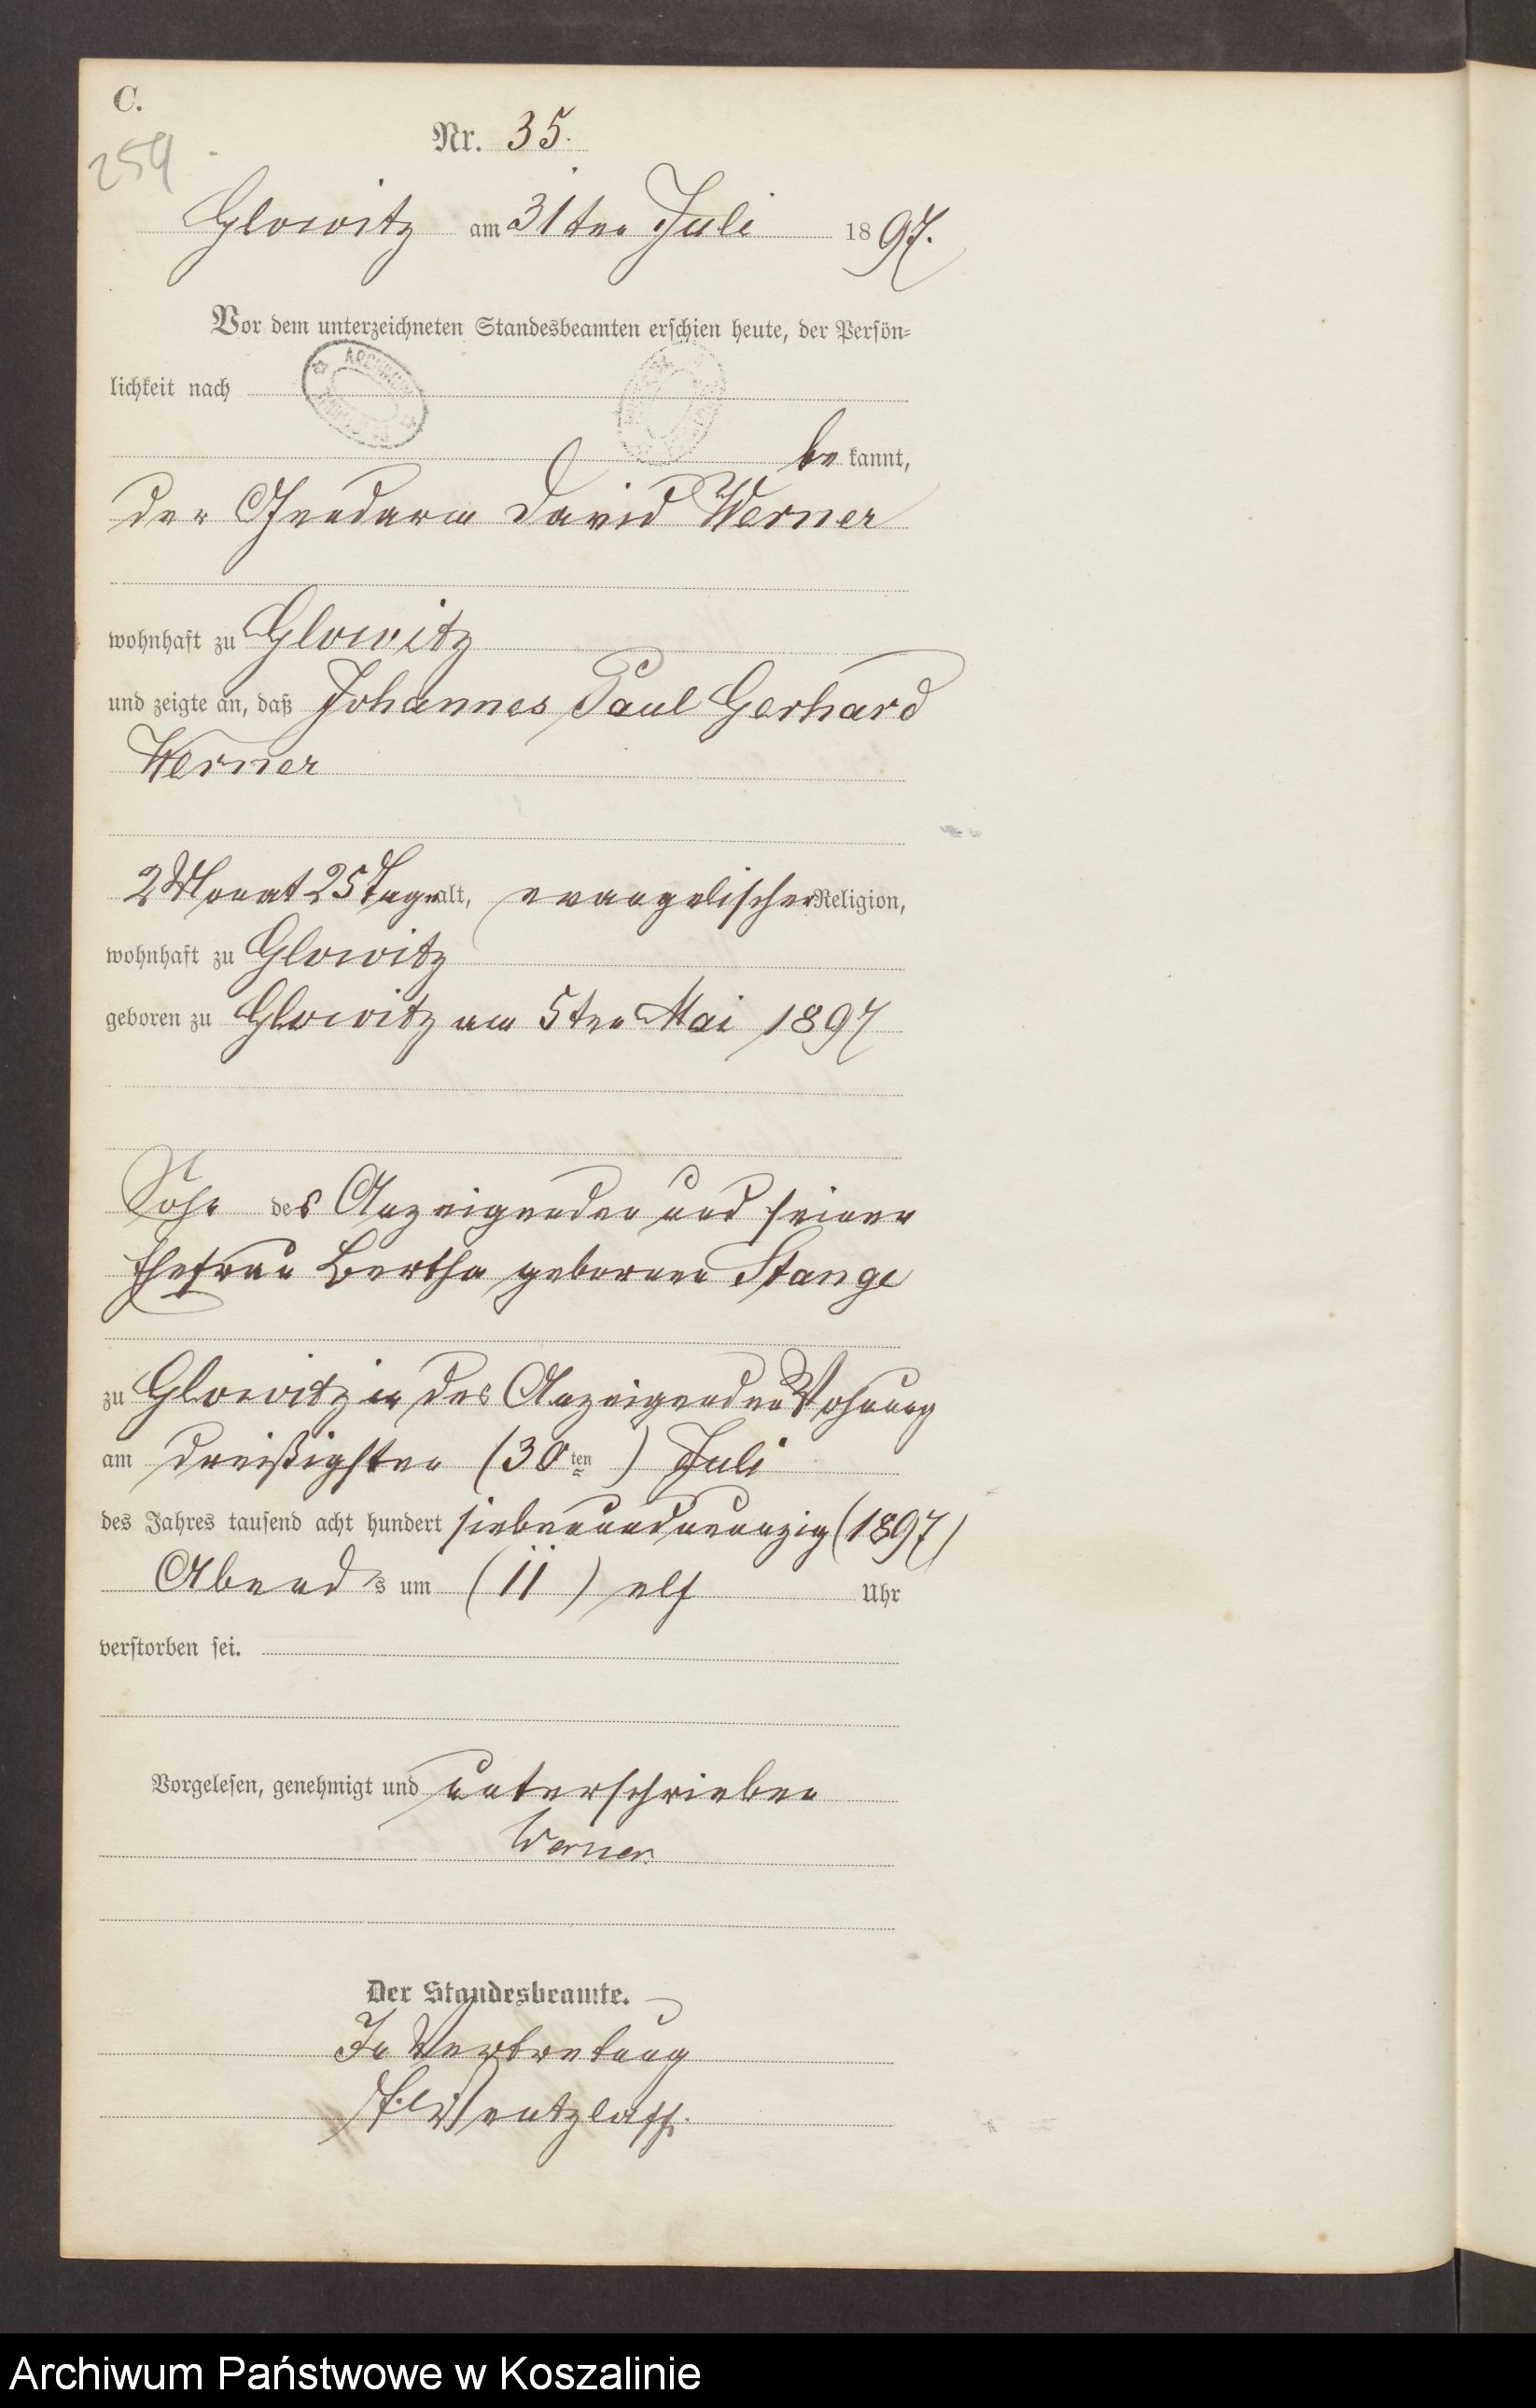 C.
254
Nr. 35.
Glowitz am 31ten Juli 1897.
Vor dem unterzeichneten Standesbeamten erschien heute, der Persön-
lichkeit nach
bekannt,
der Gendarm David Werner
wohnhaft zu Glowitz
und zeigte an, daß Johannes Paul Gerhard
Werner
2 Monat 25 Tage alt, evangelischer Religion,
wohnhaft zu Glowitz
geboren zu Glowitz am 5ten Mai 1897
Sohn des Anzeigenden und seiner
Ehefrau Bertha geborenen Stange
zu Glowitz in des Anzeigenden Wohnung
am dreißigsten (30ten) Juli
des Jahres tausend acht hundert siebenundneunzig (1897)
Abends um (11) elf Uhr
verstorben sei.
Vorgelesen, genehmigt und unterschrieben
Werner.
Der Standesbeamte.
In Vertretung
Wentzlaff.
Archiwum Państwowe w Koszalinie